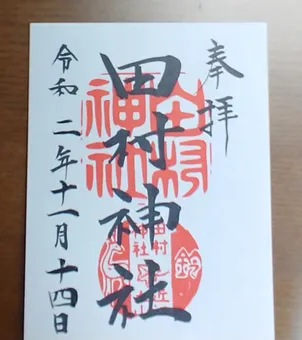 奉拝
田村神社
令和二年十一月十四日
田村神社